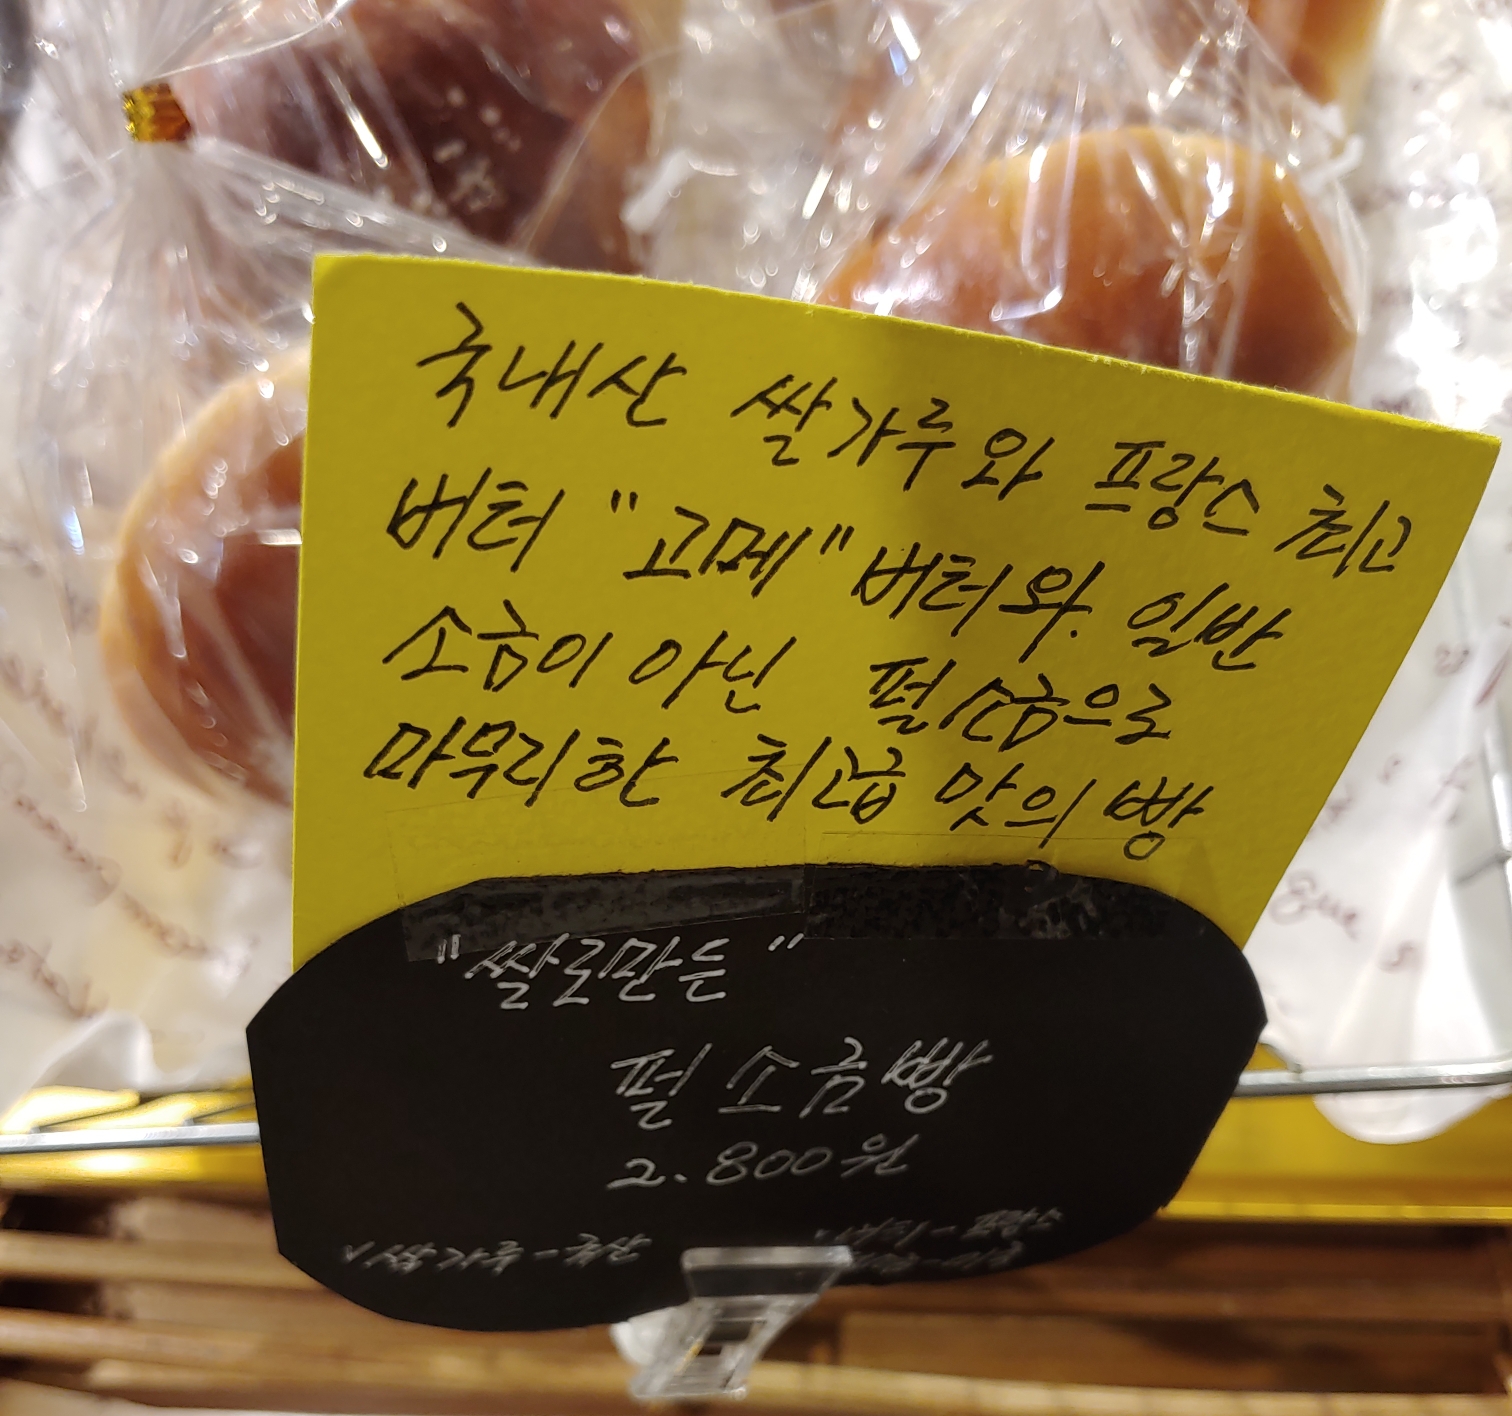 국내산 쌀가루와 프랑스 최고
버터 "고메" 버터와. 일반
소금이 아닌 펄소금으로
마무리한 최고급 맛의 빵
"쌀로만든"
펄 소금빵
2.800원
✓쌀가루-국산
버터-프랑스